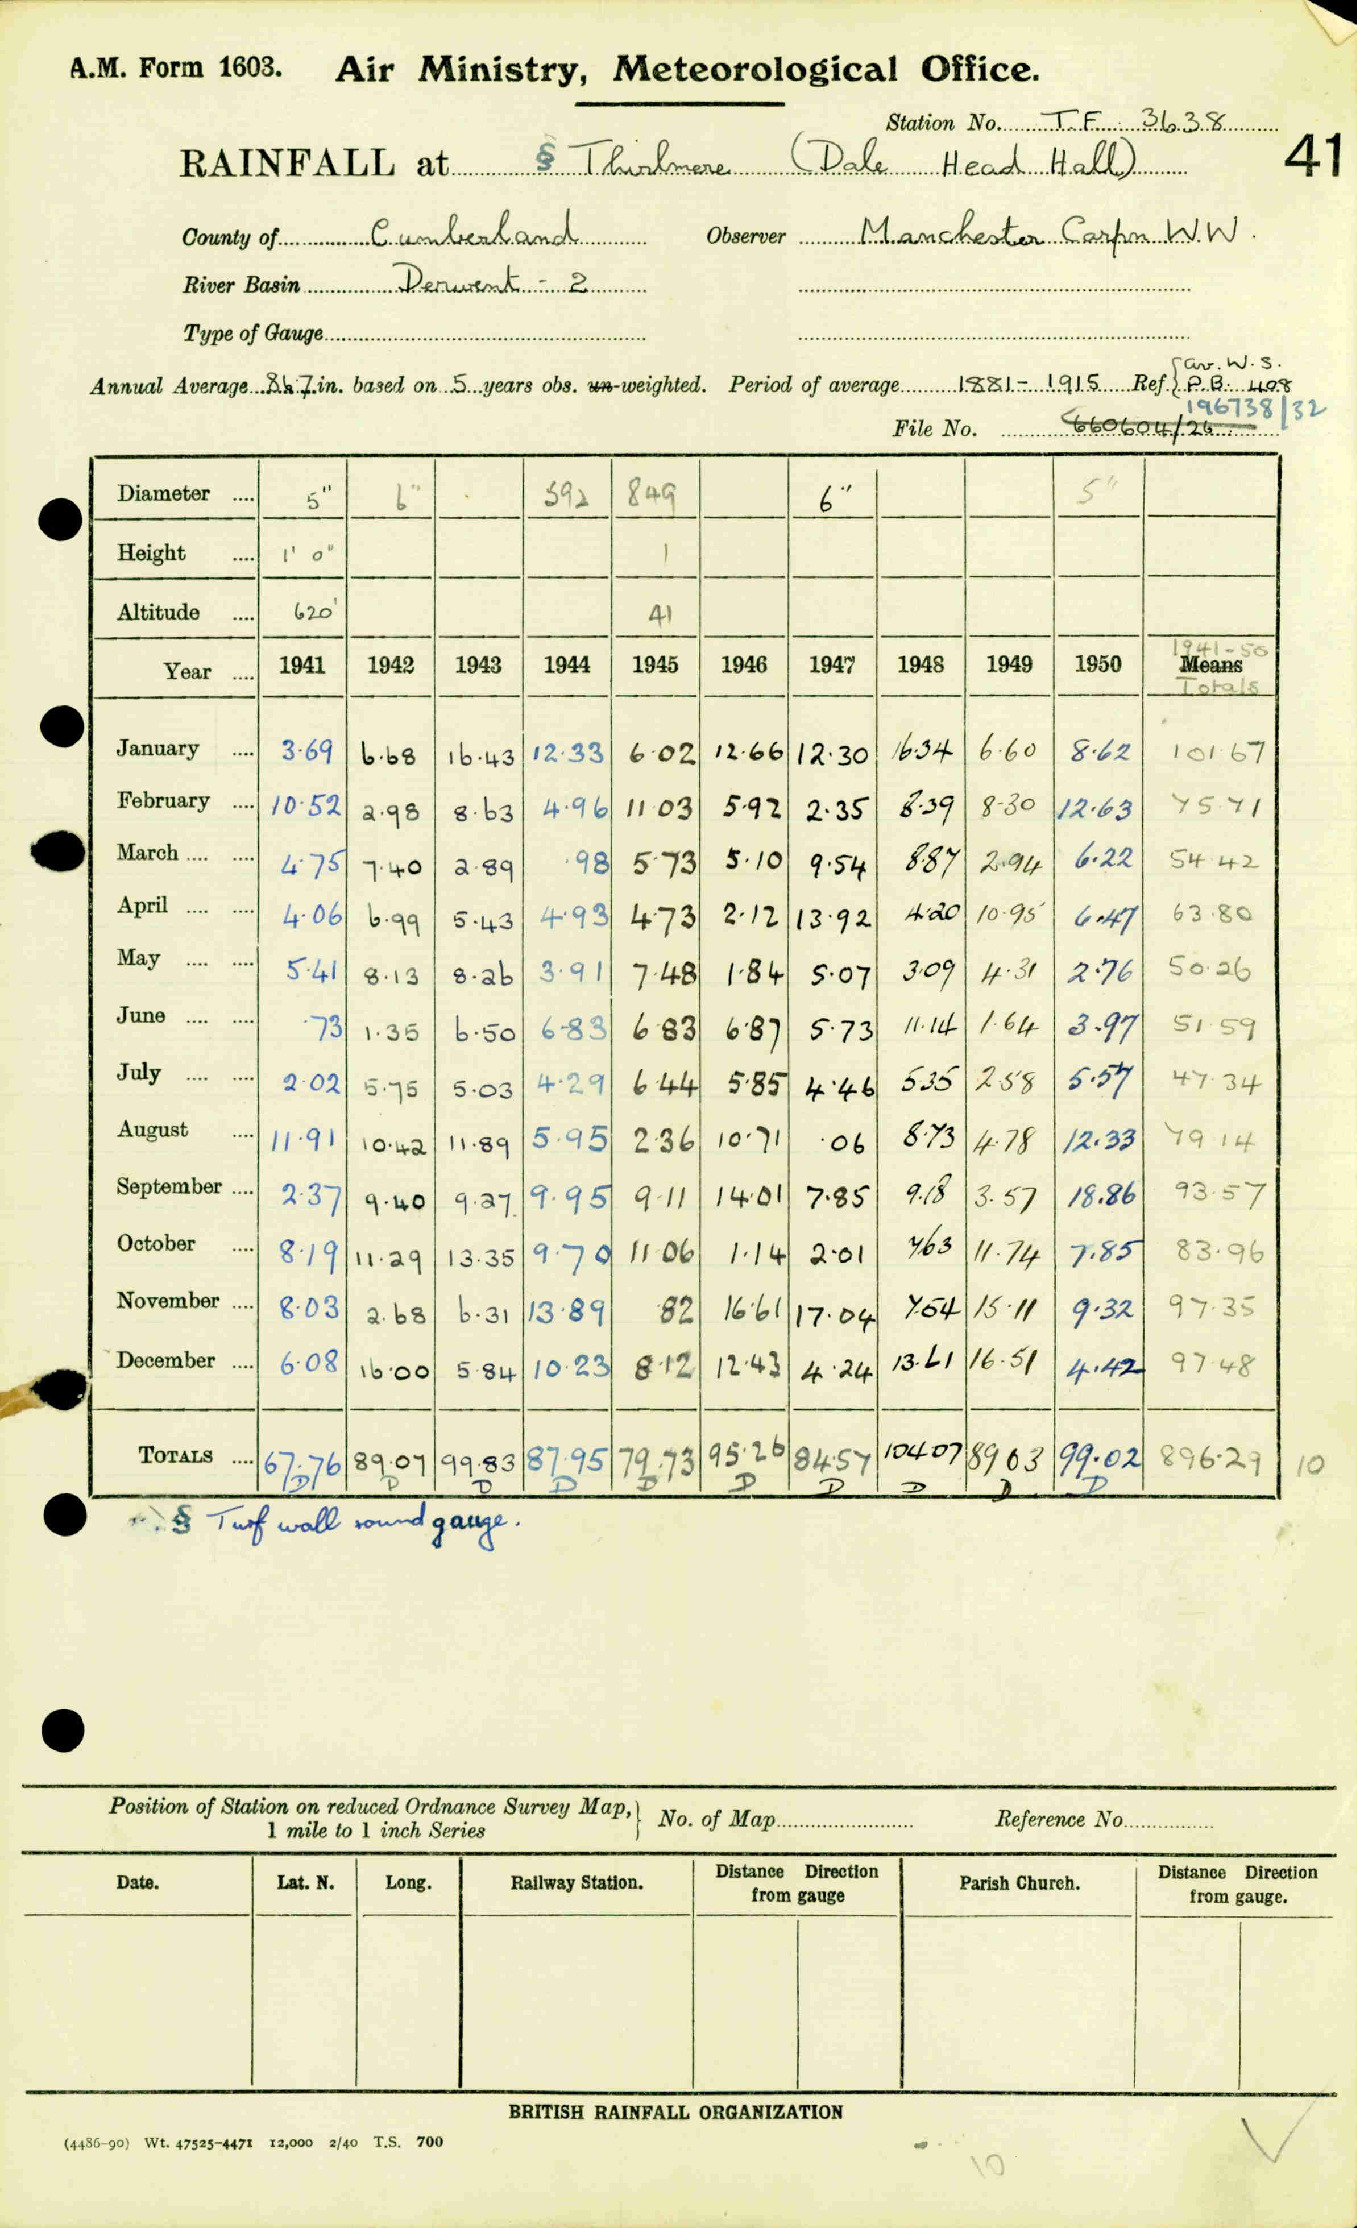 A.M. Form 1603. Air Ministry, Meteorological Office.
Station No. T.F. 3638
41
RAINFALL at § Thirlmere (Dale Head Hall)
County of Cumberland Observer Manchester Corpn W.W.
River Basin Derwent - 2
Type of Gauge
av. W.S.
Annual Average 86.7 in. based on 5 years obs. un-weighted. Period of average 1881-1915 Ref. P.B. 408
196738/32
File No. 660604/26
Diameter .... 5" 6" 592 849 6" 5"
Height .... 1' 0" 1
Altitude .... 620' 41
1941-50
Year .... 1941 1942 1943 1944 1945 1946 1947 1948 1949 1950 Means
Totals
January .... 3.69 6.68 16.43 12.33 6.02 12.66 12.30 16.34 6.60 8.62 101.67
February .... 10.52 2.98 8.63 4.96 11.03 5.92 2.35 8.39 8.30 12.63 75.71
March .... .... 4.75 7.40 2.89 .98 5.73 5.10 9.54 8.87 2.94 6.22 54.42
April .... .... 4.06 6.99 5.43 4.93 4.73 2.12 13.92 4.20 10.95 6.47 63.80
May .... .... 5.41 8.13 8.26 3.91 7.48 1.84 5.07 3.09 4.31 2.76 50.26
June .... .... .73 1.35 6.50 6.83 6.83 6.87 5.73 11.14 1.64 3.97 51.59
July .... .... 2.02 5.75 5.03 4.29 6.44 5.85 4.46 5.35 2.58 5.57 47.34
August .... 11.91 10.42 11.89 5.95 2.36 10.71 .06 8.73 4.78 12.33 79.14
September .... 2.37 9.40 9.27 9.95 9.11 14.01 7.85 9.18 3.57 18.86 93.57
October .... 8.19 11.29 13.35 9.70 11.06 1.14 2.01 7.63 11.74 7.85 83.96
November .... 8.03 2.68 6.31 13.89 .82 16.61 17.04 7.54 15.11 9.32 97.35
December .... 6.08 16.00 5.84 10.23 8.12 12.43 4.24 13.61 16.51 4.42 97.48
TOTALS .... 67.76 89.07 99.83 87.95 79.73 95.26 84.57 104.07 89.03 99.02 896.29 10
D D D D D D D D D D
§ Turf wall round gauge.
Position of Station on reduced Ordnance Survey Map, 1 mile to 1 inch Series } No. of Map Reference No.
Date. Lat. N. Long. Railway Station. Distance Direction from gauge Parish Church. Distance Direction from gauge.
BRITISH RAINFALL ORGANIZATION
(4486-90) Wt. 47525-4471 12,000 2/40 T.S. 700
10